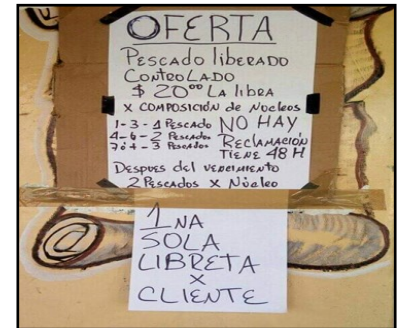 OFERTA
PESCADO liberADO
CONTROLADO
$ 20⁰⁰ LA libRA
X COMPOSICIÓN de NUCLEOS
1-3-1 PESCADO NO HAY
4-6-2 PESCADOS
7ó+-3 PESCADOS RECLAMACIÓN
TIENE 48 H
DESPUES del VENCIMIENTO
2 PESCADOS X NÚCLEO
1NA
SOLA
LIBRETA
X
CLIENTE